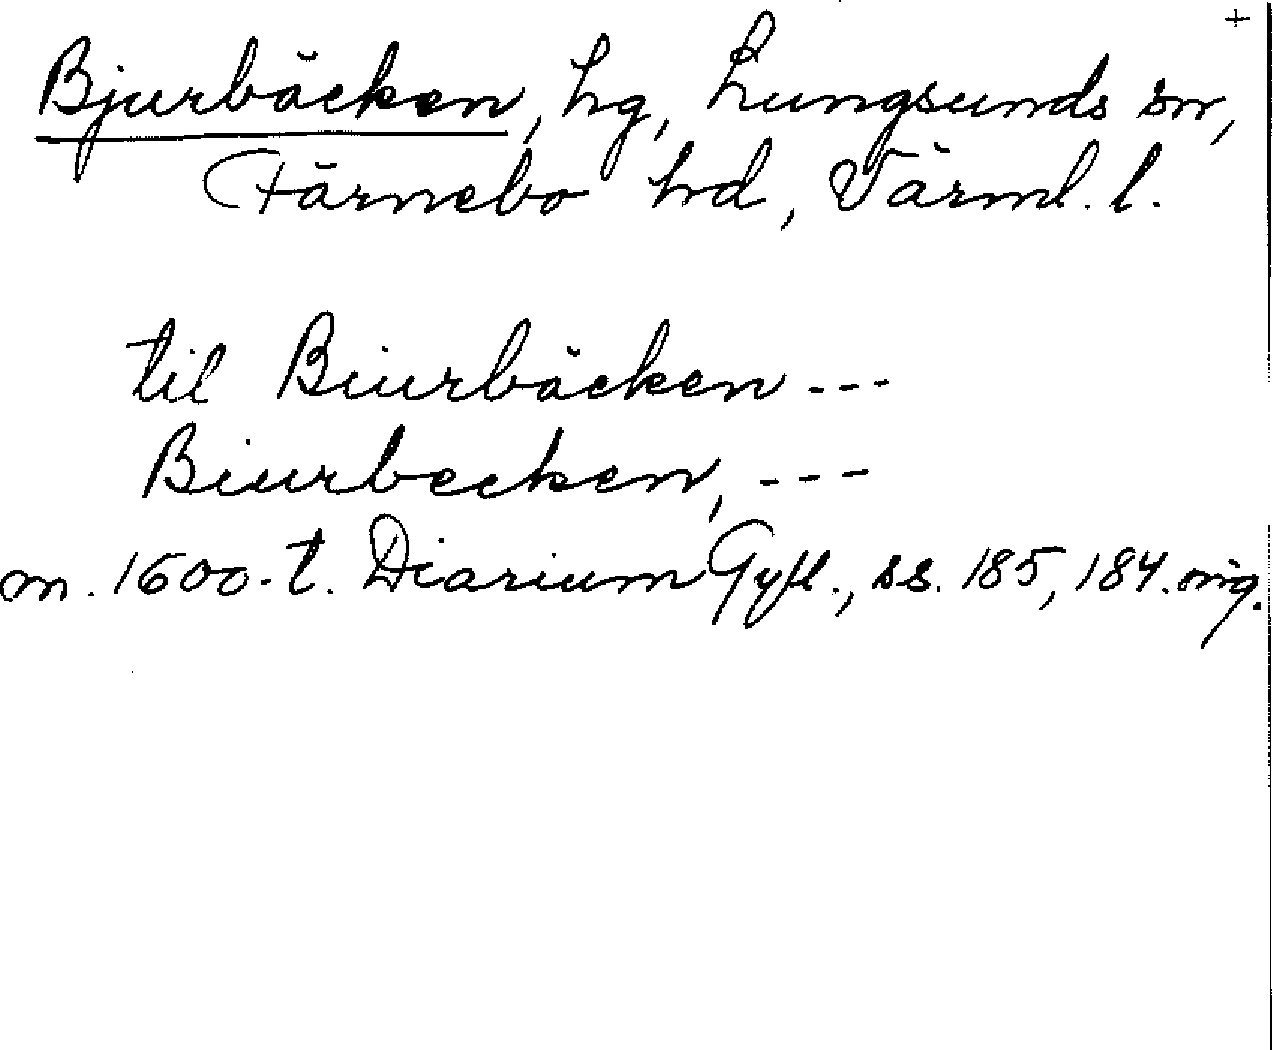 +
Bjurbäcken, hg, Lungsunds sn,
Färnebo hd, Värml. l.
til Biurbäcken ---
Biurbecken, ---
m. 1600-t. Diarium Gyll., ss. 185, 184. orig.